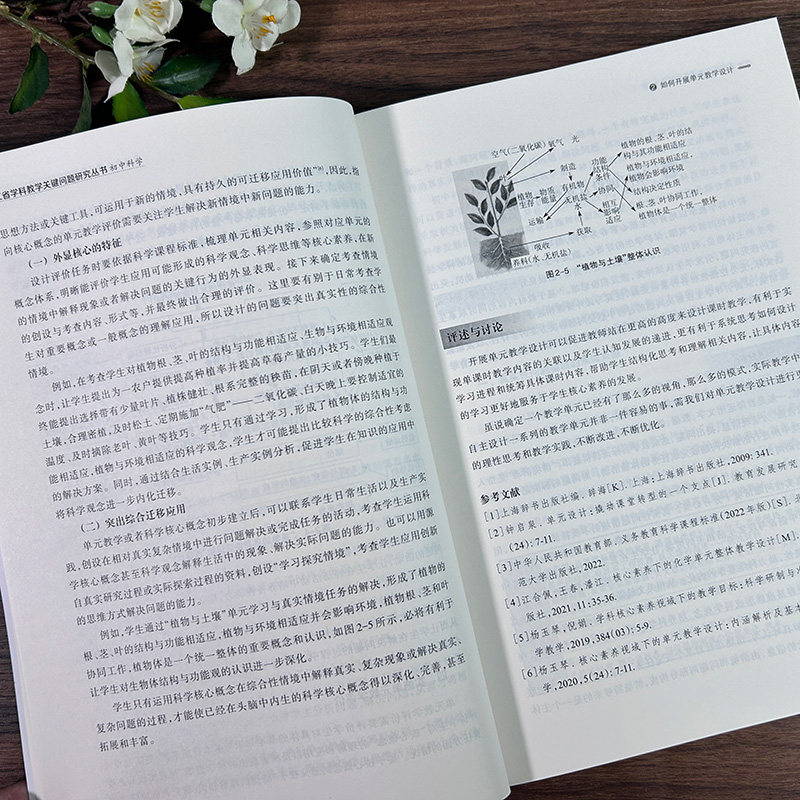 省学科教学关键问题研究丛书 初中科学
思想方法或关键工具,可运用于新的情境,具有持久的可迁移应用价值"[6],因此,指
向核心概念的单元教学评价需要关注学生解决新情境中新问题的能力。
(一)外显核心的特征
设计评价任务时要依据科学课程标准,梳理单元相关内容,参照对应单元的
概念体系,明晰能评价学生应用可能形成的科学观念、科学思维等核心素养,在新
的情境中解释现象或者解决问题的关键行为的外显表现。接下来确定考查情境
的创设与考查内容、形式等,并最终做出合理的评价。这里要有别于日常考查学
生对重要概念或一般概念的理解应用,所以设计的问题要突出真实性的综合性
情境。
例如,在考查学生对植物根、茎、叶的结构与功能相适应、生物与环境相适应观
念时,让学生提出为一农户提供提高种植率并提高草莓产量的小技巧。学生们最
终能提出选择带有少量叶片、植株健壮、根系完整的秧苗,在阴天或者傍晚种植于
土壤,合理密植,及时松土、定期施加"气肥"——二氧化碳、白天晚上要控制适宜的
温度、及时摘除老叶、黄叶等技巧。学生只有通过学习,形成了植物体的结构与功
能相适应,植物与环境相适应的科学观念,学生才可能提出比较科学的综合性考虑
的解决方案。同时,通过结合生活实例、生产实例分析,促进学生在知识的应用中
将科学观念进一步内化迁移。
(二)突出综合迁移应用
单元教学或者科学核心概念初步建立后,可以联系学生日常生活以及生产实
践,创设在相对真实复杂情境中进行问题解决或完成任务的活动,考查学生运用科
学核心概念甚至科学观念解释生活中的现象、解决实际问题的能力。也可以用源
自真实研究过程或实际探索过程的资料,创设"学习探究情境",考查学生应用创新
的思维方式解决问题的能力。
例如,学生通过"植物与土壤"单元学习与真实情境任务的解决,形成了植物的
根、茎、叶的结构与功能相适应,植物与环境相适应并会影响环境,植物根、茎和叶
协同工作,植物体是一个统一整体的重要概念和认识,如图2-5所示,必将有利于
让学生对生物体结构与功能观的认识进一步深化。
学生只有运用科学核心概念在综合性情境中解释真实、复杂现象或解决真实、
复杂问题的过程,才能使已经在头脑中内生的科学核心概念得以深化、完善,甚至
拓展和丰富。
❷ 如何开展单元教学设计
空气(二氧化碳) 氧气 光
制造
有机物
无机盐
植物 物质
生存 能量
运输
获取
吸收
养料(水、无机盐)
功能
结构
条件
协同
相互
影响
适应
植物的根、茎、叶的结
构与其功能相适应,
植物与环境相适应,
植物会影响环境
结构决定性质
根、茎、叶协同工作,
植物体是一个统一整体
图2-5 "植物与土壤"整体认识
评述与讨论
开展单元教学设计可以促进教师站在更高的高度来设计课时教学,有利于实
现单课时教学内容的关联以及学生认知发展的递进,更有利于系统思考如何设计
学习进程和统筹具体课时内容,帮助学生结构化思考和理解相关内容,让具体内容
的学习更好地服务于学生核心素养的发展。
虽说确定一个教学单元已经有了那么多的视角,那么多的模式,实际教学中
自主设计一系列的教学单元并非一件容易的事,需我们对单元教学设计进行更
的理性思考和教学实践,不断改进,不断优化。
参考文献
[1]上海辞书出版社编. 辞海[K]. 上海:上海辞书出版社,2009:341.
[2]钟启泉. 单元设计:撬动课堂转型的一个支点[J]. 教育发展研究
(24):7-11.
[3]中华人民共和国教育部. 义务教育科学课程标准(2022年版)[S].
范大学出版社,2022.
[4]江合佩,王春,潘江. 核心素养下的化学单元整体教学设计[M].
版社,2021,11:35-36.
[5]杨玉琴,倪娟. 学科核心素养视域下的教学目标:科学研制与
学教学,2019,384(03):5-9.
[6]杨玉琴. 核心素养视域下的单元教学设计:内涵解析及基本
学,2020,5(24):7-11.